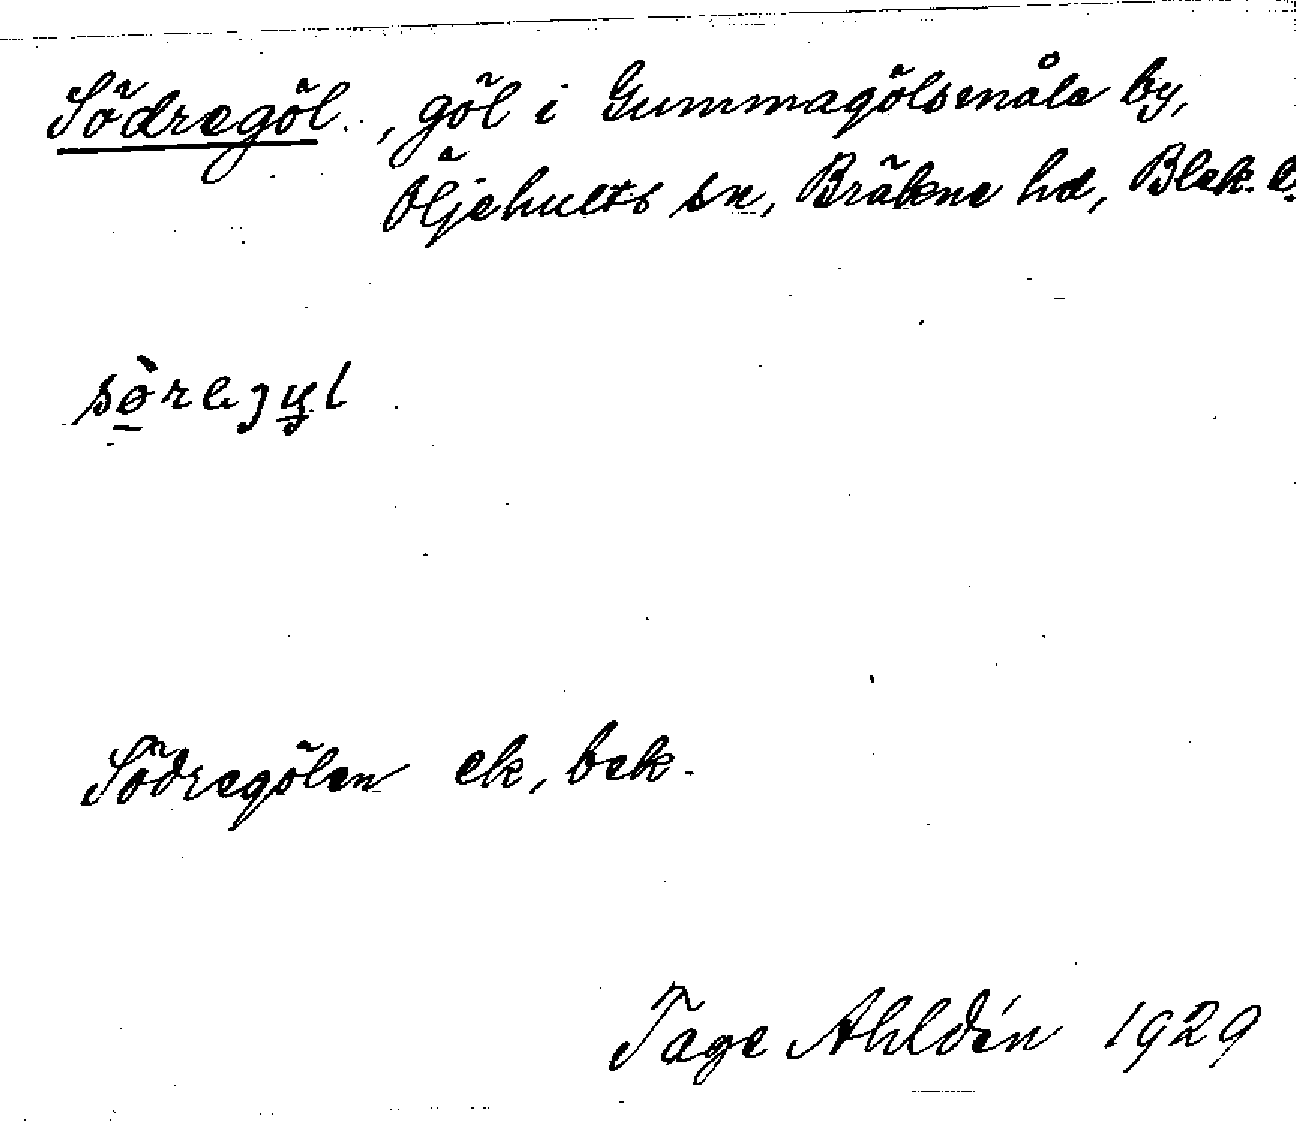 Södregöl, göl i Gummagölsmåla by,
Öljehults sn, Bräkne hd, Blek. l.
sö̀rejyl
Södregölen ek, bek.
Tage Ahldén 1929